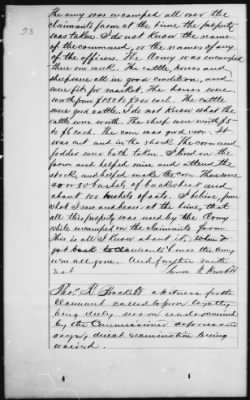 23
The army was encamped all over the
claimants farm at the time the property
was taken I do not know the name
of the command, or the names of any
of the officers. The Army was encamped
there one week. The cattle, horses and
sheep were all in good condition, and
were fit for market. The horses were
worth from $125 to $200 each. The cattle
were good cattle, I do not know what the
cattle were worth. The sheep were worth $5
to $6 each. The corn was good corn. It
was cut and in the shock The corn and
fodder were both taken. I lived on the
farm and helped raise and attend the
stock, and helped make the corn. There were
40 or 50 bushels of
about 100 bushels of oats. I believe from
what I saw and heard at the time, that
all this property was used by the Army
while encamped on the claimants farm.
This is all I know about it, when I
got back to claimants house the Army
was all gone. And further saith
not
Thos. R. a witness for the
Claimant called to prove loyalty
being duly sworn and examined
by the Commissioner deposes and
says, direct examination being
waived.